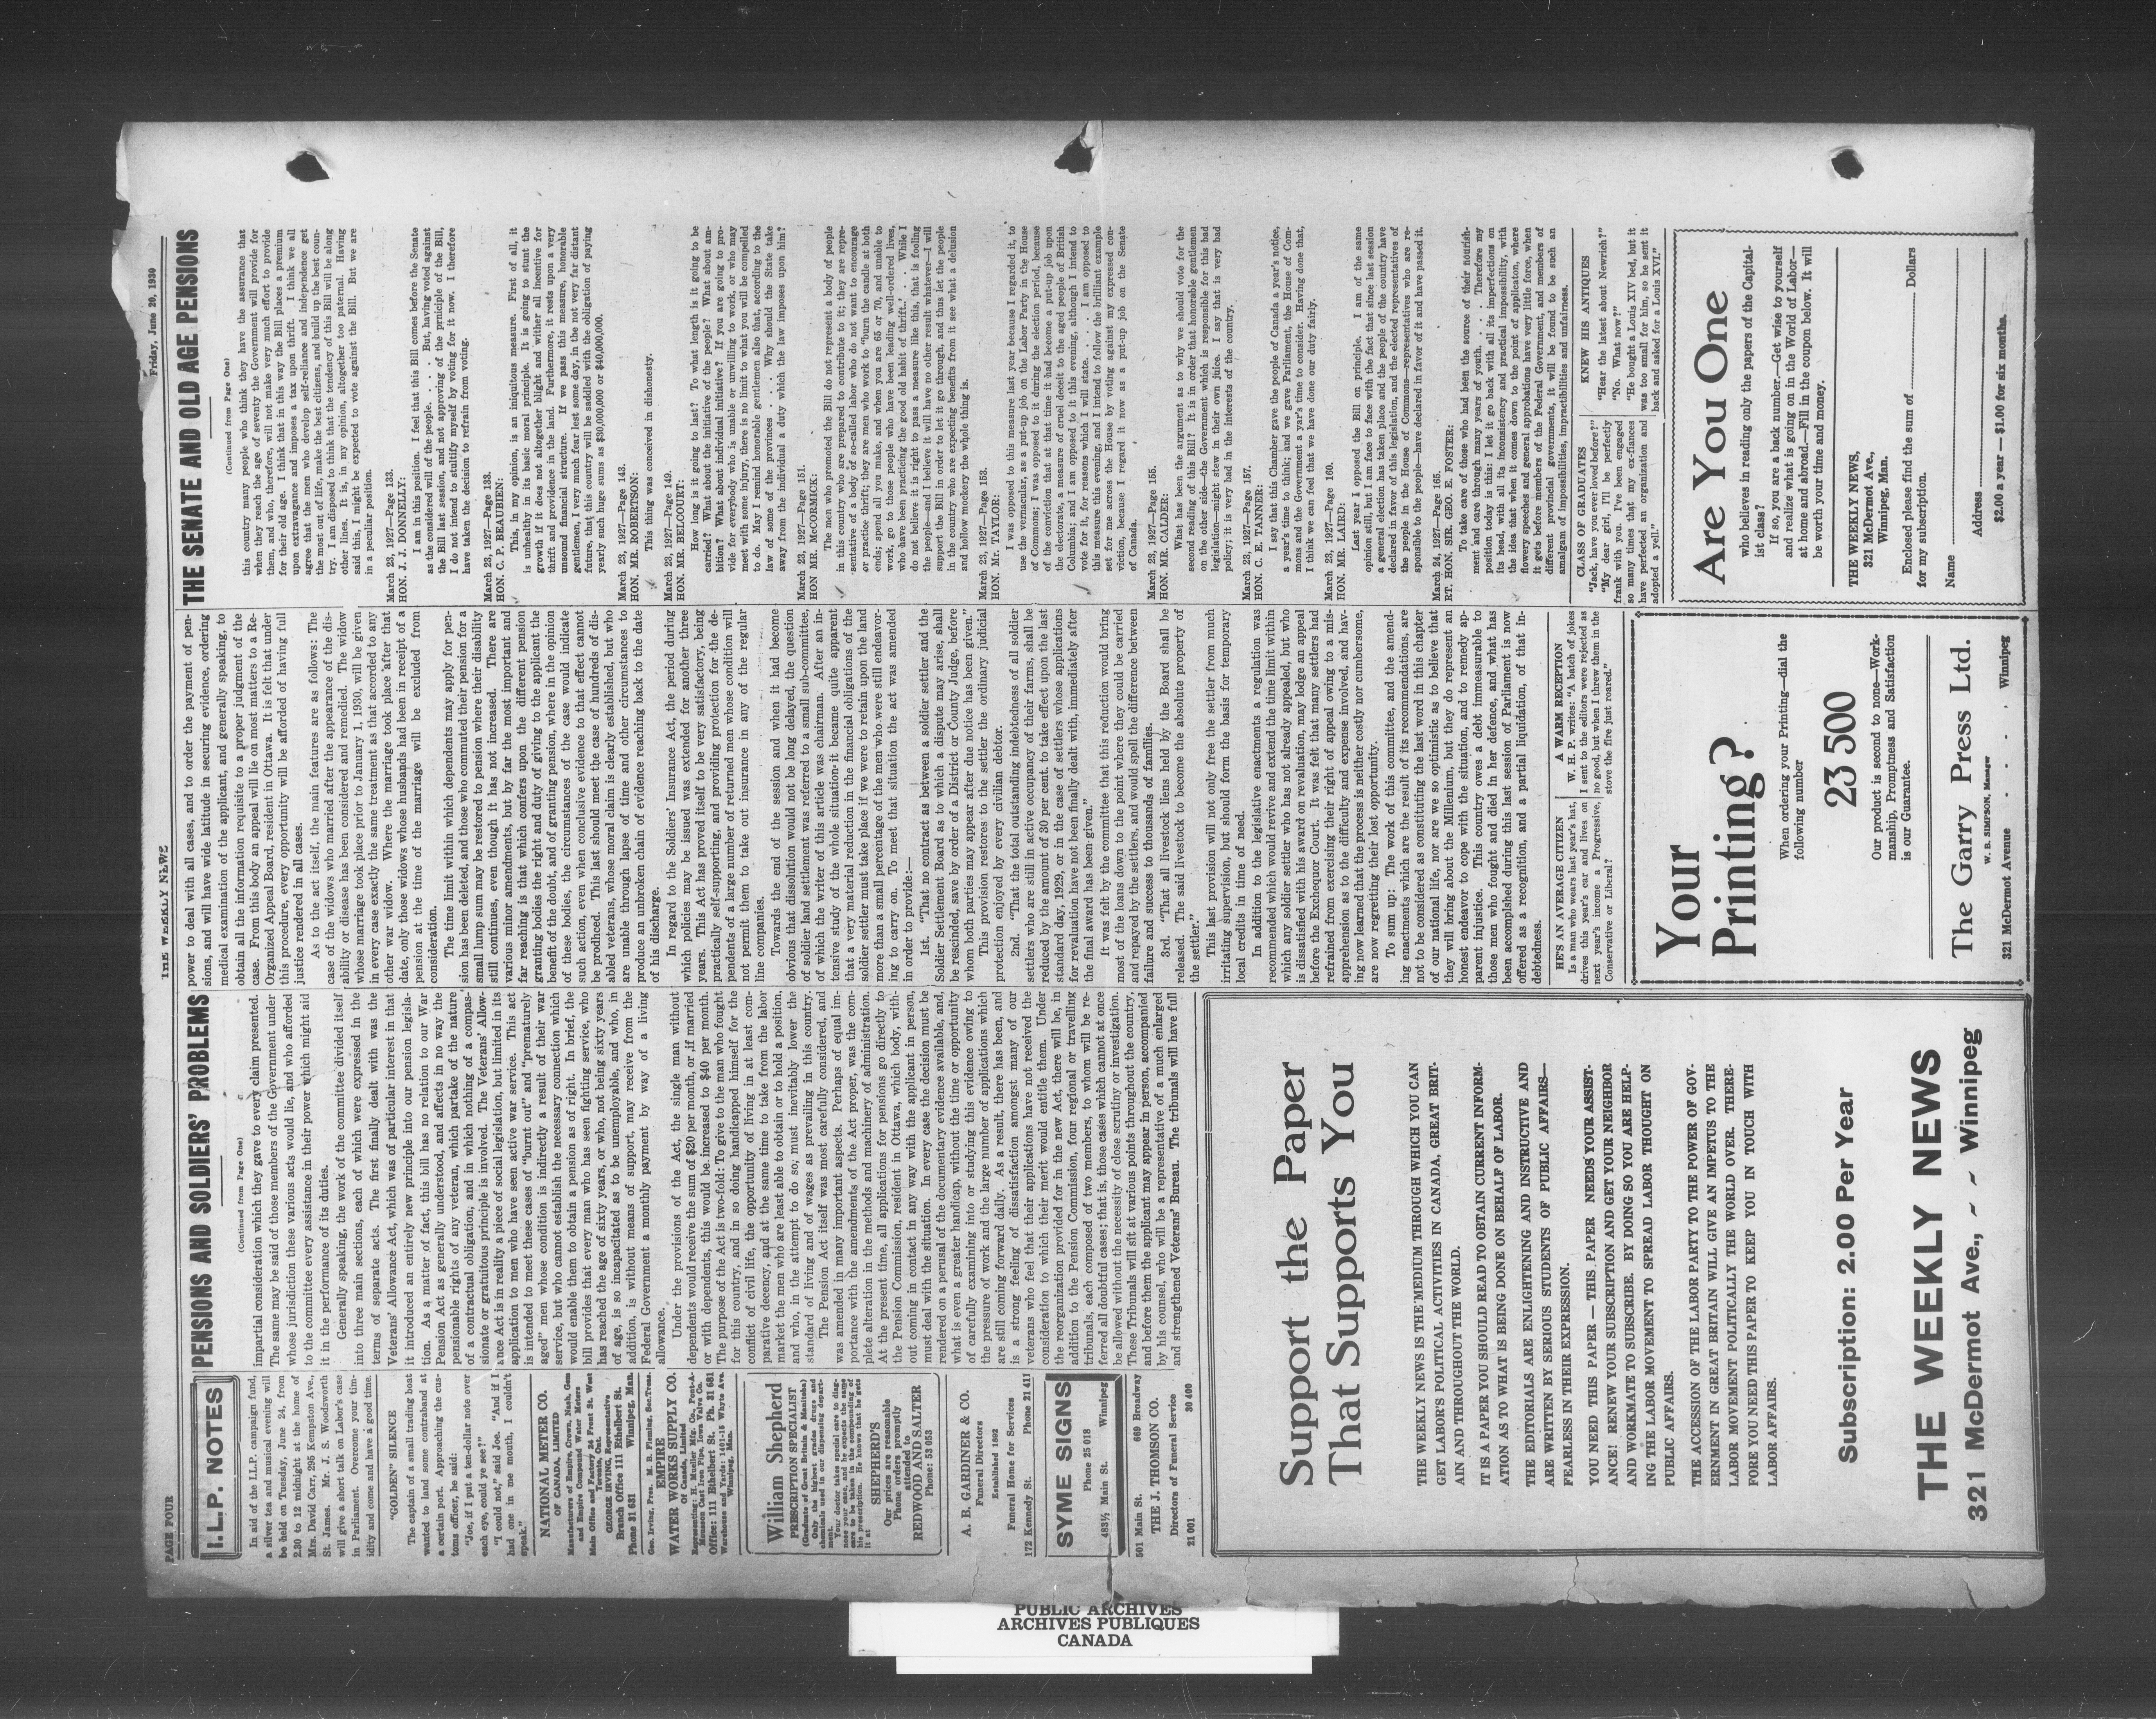 PAGE FOUR
THE WEEKLY NEWS
Friday, June 20, 1930
I.L.P. NOTES
In aid of the I.L.P. campaign fund,
a silver tea and musical evening will
be held on Tuesday, June 24, from
2.30 to 12 midnight at the home of
Mrs. David Carr, 295 Kempston Ave.,
St. James. Mr. J. S. Woodsworth
will give a short talk on Labor's case
in Parliament. Overcome your tim-
idity and come and have a good time.
"GOLDEN" SILENCE
The captain of a small trading boat
wanted to land some contraband at
a certain port. Approaching the cus-
toms officer, he said:
"Joe, if I put a ten-dollar note over
each eye, could ye see?"
"I could not," said Joe. "And if I
had one in me mouth, I couldn't
speak."
NATIONAL METER CO.
OF CANADA, LIMITED
Manufacturers of Empire, Crown, Nash, Gem
and Empire Compound Water Meters
Main Office and Factory 24 Front St. West
Toronto, Ont.
GEORGE IRVING, Representative
Branch Office 111 Ethelbert St.
Phone 31 681 Winnipeg, Man.
Geo. Irving, Pres. M. B. Fleming, Sec.Treas.
EMPIRE
WATER WORKS SUPPLY CO.
Of Canada, Limited
Representing: H. Mueller Mfg. Co., Pont-A-
Mousson Cast Iron Pipe, Iowa Valve Co.
Office: 111 Ethelbert St. Ph. 31 681
Warehouse and Yards: 1401-15 Whyte Ave.
Winnipeg, Man.
William Shepherd
PRESCRIPTION SPECIALIST
(Graduate of Great Britain & Manitoba)
Only the highest grades drugs and
chemicals used in our dispensing depart-
ment.
Your doctor takes special care to diag-
nose your case, and he expects the same
care to be taken in the compounding of
his prescription. He knows that he gets
it at
SHEPHERD'S
Our prices are reasonable
Phone orders promptly
attended to
REDWOOD AND SALTER
Phone: 53 053
A. B. GARDINER & CO.
Funeral Directors
Established 1892
Funeral Home for Services
172 Kennedy St. Phone 21 411
SYME SIGNS
Phone 25 018
483½ Main St. Winnipeg
501 Main St. 669 Broadway
THE J. THOMSON CO.
Directors of Funeral Service
21 001 30 400
PENSIONS AND SOLDIERS' PROBLEMS
(Continued from Page One)
impartial consideration which they gave to every claim presented.
The same may be said of those members of the Government under
whose jurisdiction these various acts would lie, and who afforded
to the committee every assistance in their power which might aid
it in the performance of its duties.
Generally speaking, the work of the committee divided itself
into three main sections, each of which were expressed in the
terms of separate acts. The first finally dealt with was the
Veterans' Allowance Act, which was of particular interest in that
it introduced an entirely new principle into our pension legisla-
tion. As a matter of fact, this bill has no relation to our War
Pension Act as generally understood, and affects in no way the
pensionable rights of any veteran, which partake of the nature
of a contractual obligation, and in which nothing of a compas-
sionate or gratuitous principle is involved. The Veterans' Allow-
ance Act is in reality a piece of social legislation, but limited in its
application to men who have seen active war service. This act
is intended to meet these cases of "burnt out" and "prematurely
aged" men whose condition is indirectly a result of their war
service, but who cannot establish the necessary connection which
would enable them to obtain a pension as of right. In brief, the
bill provides that every man who has seen fighting service, who
has reached the age of sixty years, or who, not being sixty years
of age, is so incapacitated as to be unemployable, and who, in
addition, is without means of support, may receive from the
Federal Government a monthly payment by way of a living
allowance.
Under the provisions of the Act, the single man without
dependents would receive the sum of $20 per month, or ,if married
or with dependents, this would be increased to $40 per month.
The purpose of the Act is two-fold: To give to the man who fought
for this country, and in so doing handicapped himself for the
conflict of civil life, the opportunity of living in at least com-
parative decency, and at the same time to take from the labor
market the men who are least able to obtain or to hold a position,
and who, in the attempt to do so, must inevitably lower the
standard of living and of wages as prevailing in this country.
The Pension Act itself was most carefully considered, and
was amended in many important aspects. Perhaps of equal im-
portance with the amendments of the Act proper, was the com-
plete alteration in the methods and machinery of administration.
At the present time, all applications for pensions go directly to
the Pension Commission, resident in Ottawa, which body, with-
out coming in contact in any way with the applicant in person,
must deal with the situation. In every case the decision must be
rendered on a perusal of the documentary evidence available, and,
what is even a greater handicap, without the time or opportunity
of carefully examining into or studying this evidence owing to
the pressure of work and the large number of applications which
are still coming forward daily. As a result, there has been, and
is a strong feeling of dissatisfaction amongst many of our
veterans who feel that their applications have not received the
consideration to which their merit would entitle them. Under
the reorganization provided for in the new Act, there will be, in
addition to the Pension Commission, four regional or travelling
tribunals, each composed of two members, to whom will be re-
ferred all doubtful cases; that is, those cases which cannot at once
be allowed without the necessity of close scrutiny or investigation.
These Tribunals will sit at various points throughout the country,
and before them the applicant may appear in person, accompanied
by his counsel, who will be a representative of a much enlarged
and strengthened Veterans' Bureau. The tribunals will have full
power to deal with all cases, and to order the payment of pen-
sions, and will have wide latitude in securing evidence, ordering
medical examination of the applicant, and generally speaking, to
obtain all the information requisite to a proper judgment of the
case. From this body an appeal will lie on most matters to a Re-
Organized Appeal Board, resident in Ottawa. It is felt that under
this procedure, every opportunity will be afforded of having full
justice rendered in all cases.
As to the act itself, the main features are as follows: The
case of the widows who married after the appearance of the dis-
ability or disease has been considered and remedied. The widow
whose marriage took place prior to January 1, 1930, will be given
in every case exactly the same treatment as that accorded to any
other war widow. Where the marriage took place after that
date, only those widows whose husbands had been in receipt of a
pension at the time of the marriage will be excluded from
consideration.
The time limit within which dependents may apply for pen-
sion has been deleted, and those who commuted their pension for a
small lump sum may be restored to pension where their disability
still continues, even though it has not increased. There are
various minor amendments, but by far the most important and
far reaching is that which confers upon the different pension
granting bodies the right and duty of giving to the applicant the
benefit of the doubt, and of granting pension, where in the opinion
of these bodies, the circumstances of the case would indicate
such action, even when conclusive evidence to that effect cannot
be produced. This last should meet the case of hundreds of dis-
abled veterans, whose moral claim is clearly established, but who
are unable through lapse of time and other circumstances to
produce an unbroken chain of evidence reaching back to the date
of his discharge.
In regard to the Soldiers' Insurance Act, the period during
which policies may be issued was extended for another three
years. This Act has proved itself to be very satisfactory, being
practically self-supporting, and providing protection for the de-
pendents of a large number of returned men whose condition will
not permit them to take out insurance in any of the regular
line companies.
Towards the end of the session and when it had become
obvious that dissolution would not be long delayed, the question
of soldier land settlement was referred to a small sub-committee,
of which the writer of this article was chairman. After an in-
tensive study of the whole situation it became quite apparent
that a very material reduction in the financial obligations of the
soldier settler must take place if we were to retain upon the land
more than a small percentage of the men who were still endeavor-
ing to carry on. To meet that situation the act was amended
in order to provide:—
1st. "That no contract as between a soldier settler and the
Soldier Settlement Board as to which a dispute may arise, shall
be rescinded, save by order of a District or County Judge, before
whom both parties may appear after due notice has been given."
This provision restores to the settler the ordinary judicial
protection enjoyed by every civilian debtor.
2nd. "That the total outstanding indebtedness of all soldier
settlers who are still in active occupancy of their farms, shall be
reduced by the amount of 30 per cent. to take effect upon the last
standard day, 1929, or in the cases of settlers whose applications
for revaluation have not been finally dealt with, immediately after
the final award has been given."
It was felt by the committee that this reduction would bring
most of the loans down to the point where they could be carried
and repayed by the settlers, and would spell the difference between
failure and success to thousands of families.
3rd. "That all livestock liens held by the Board shall be
released. The said livestock to become the absolute property of
the settler."
This last provision will not only free the settler from much
irritating supervision, but should form the basis for temporary
local credits in time of need.
In addition to the legislative enactments a regulation was
recommended which would revive and extend the time limit within
which any soldier settler who has not already appealed, but who
is dissatisfied with his award on revaluation, may lodge an appeal
before the Exchequor Court. It was felt that many settlers had
refrained from exercising their right of appeal owing to a mis-
apprehension as to the difficulty and expense involved, and hav-
ing now learned that the process is neither costly nor cumbersome,
are now regretting their lost opportunity.
To sum up: The work of this committee, and the amend-
ing enactments which are the result of its recommendations, are
not to be considered as constituting the last word in this chapter
of our national life, nor are we so optimistic as to believe that
they will bring about the Millenium, but they do represent an
honest endeavor to cope with the situation, and to remedy ap-
parent injustice. This country owes a debt immeasurable to
those men who fought and died in her defence, and what has
been accomplished during this last session of Parliament is now
offered as a recognition, and a partial liquidation, of that in-
debtedness.
HE'S AN AVERAGE CITIZEN
Is a man who wears last year's hat,
drives this year's car and lives on
next year's income a Progressive,
Conservative or Liberal?
A WARM RECEPTION
W. H. P. writes: "A batch of jokes
I sent to the editors were rejected as
no good, but when I threw them in the
stove the fire just roared."
THE SENATE AND OLD AGE PENSIONS
(Continued from Page One)
this country many people who think they have the assurance that
when they reach the age of seventy the Government will provide for
them, and who, therefore, will not make very much effort to provide
for their old age. I think that in this way the Bill places a premium
upon extravagance and imposes a tax upon thrift. I think we all
agree that the men who develop self-reliance and independence get
the most out of life, make the best citizens, and build up the best coun-
try. I am disposed to think that the tendency of this Bill will be along
other lines. It is, in my opinion, altogether too paternal. Having
said this, I might be expected to vote against the Bill. But we are
in a peculiar position.
March 23, 1927—Page 133.
HON. J. J. DONNELLY:
I am in this position. I feel that this Bill comes before the Senate
as the considered will of the people. . . . . But, having voted against
the Bill last session, and not approving of the prniciple of the Bill,
I do not intend to stultify myself by voting for it now. I therefore
have taken the decision to refrain from voting.
March 23, 1927—Page 133.
HON. C. P. BEAUBIEN:
This, in my opinion, is an iniquitous measure. First of all, it
is unhealthy in its basic moral principle. It is going to stunt the
growth if it does not altogether blight and wither all incentive for
thrift and providence in the land. Furthermore, it rests upon a very
unsound financial structure. If we pass this measure, honorable
gentlemen, I very much fear lest some day, in the not very far distant
future, that this country will be saddled with the obligation of paying
yearly such huge sums as $30,000,000 or $40,000,000.
March 23, 1927—Page 143.
HON. MR. ROBERTSON:
This thing was conceived in dishonesty.
March 23, 1927—Page 149.
HON. MR. BELCOURT:
How long is it going to last? To what length is it going to be
carried? What about the initiative of the people? What about am-
bition? What about individual initiative? If you are going to pro-
vide for everybody who is unable or unwilling to work, or who may
meet with some injury, there is no limit to what you will be compelled
to do. May I remind honorable gentlemen also that, according to the
law of some of the provinces . . . . Why should the State take
away from the individual a duty which the law imposes upon him?
March 23, 1927—Page 151.
HON MR. McCORMICK:
The men who promoted the Bill do not represent a body of people
in this country who are prepared to contribute to it; they are repre-
sentative of a body of so-called labor who do not want to encourage
or practice thrift; they are men who work to "burn the candle at both
ends; spend all you make, and when you are 65 or 70, and unable to
work, go to those people who have been leading well-ordered lives,
who have been practicing the good old habit of thrift..' . . While I
do not believe it is right to pass a measure like this, that is fooling
the people—and I believe it will have no other result whatever—I will
support the Bill in order to let it go through, and thus let the people
in the country who are expecting benefits from it see what a delusion
and how mockery the whole thing is.
March 23, 1927—Page 153.
HON. Mr. TAYLOR:
I was opposed to this measure last year because I regarded it, to
use the vernacular, as a put-up job on the Labor Party in the House
of Commons; I was opposed to it during the election period, because
of the conviction that at that time it had become a put-up job upon
the electorate, a measure of cruel deceit to the aged people of British
Columbia; and I am opposed to it this evening, although I intend to
vote for it, for reasons which I will state. . . . . I am opposed to
this measure this evening, and I intend to follow the brilliant example
set for me across the House by voting against my expressed con-
viction, because I regard it now as a put-up job on the Senate
of Canada.
March 23, 1927—Page 155.
HON. MR. CALDER:
What has been the argument as to why we should vote for the
second reading of this Bill? It is in order that honorable gentlemen
on the other side—the Government which is responsible for this bad
legislation—might stew in their own juice. I say that is very bad
policy; it is very bad in the interests of the country.
March 23, 1927—Page 157.
HON. C. E. TANNER:
I say that this Chamber gave the people of Canada a year's notice,
a year's time to think; and we gave Parliament, the House of Com-
mons and the Government a year's time to consider. Having done that,
I think we can feel that we have done our duty fairly.
March 23, 1927—Page 160.
HON. MR. LAIRD:
Last year I opposed the Bill on principle. I am of the same
opinion still, but I am face to face with the fact that since last session
a general election has taken place and the people of the country have
declared in favor of this legislation, and the elected representatives of
the people in the House of Commons—representatives who are re-
sponsible to the people—have declared in favor of it and have passed it.
March 24, 1927—Page 165.
RT. HON. SIR. GEO. E. FOSTER:
To take care of those who had been the source of their nourish-
ment and care through many years of youth. . . . . Therefore my
position today is this: I let it go back with all its imperfections on
its head, with all its inconsistency and practical impossibility, with
the idea that when it comes down to the point of applicaton, where
flowery speeches and general approbations have very little force, when
it gets before members of the Federal Government, and members of
different provincial governments, it will be found to be such an
amalgam of impossibilities, impractibilities and unfairness.
CLASS OF GRADUATES
"Jack, have you ever loved before?"
"My dear girl, I'll be perfectly
frank with you. I've been engaged
so many times that my ex-fiances
have perfected an organization and
adopted a yell."
KNEW HIS ANTIQUES
"Hear the latest about Newrich?"
"No. What now?"
"He bought a Louis XIV bed, but it
was too small for him, so he sent it
back and asked for a Louis XVI."
Support the Paper
That Supports You
THE WEEKLY NEWS IS THE MEDIUM THROUGH WHICH YOU CAN
GET LABOR'S POLITICAL ACTIVITIES IN CANADA, GREAT BRIT-
AIN AND THROUGHOUT THE WORLD.
IT IS A PAPER YOU SHOULD READ TO OBTAIN CURRENT INFORM-
ATION AS TO WHAT IS BEING DONE ON BEHALF OF LABOR.
THE EDITORIALS ARE ENLIGHTENING AND INSTRUCTIVE AND
ARE WRITTEN BY SERIOUS STUDENTS OF PUBLIC AFFAIRS—
FEARLESS IN THEIR EXPRESSION.
YOU NEED THIS PAPER — THIS PAPER NEEDS YOUR ASSIST-
ANCE! RENEW YOUR SUBSCRIPTION AND GET YOUR NEIGHBOR
AND WORKMATE TO SUBSCRIBE. BY DOING SO YOU ARE HELP-
ING THE LABOR MOVEMENT TO SPREAD LABOR THOUGHT ON
PUBLIC AFFAIRS.
THE ACCESSION OF THE LABOR PARTY TO THE POWER OF GOV-
ERNMENT IN GREAT BRITAIN WILL GIVE AN IMPETUS TO THE
LABOR MOVEMENT POLITICALLY THE WORLD OVER. THERE-
FORE YOU NEED THIS PAPER TO KEEP YOU IN TOUCH WITH
LABOR AFFAIRS.
Subscription: 2.00 Per Year
THE WEEKLY NEWS
321 McDermot Ave., ~ ~ Winnipeg
Your
Printing?
When ordering your Printing—dial the
following number
23 500
Our product is second to none—Work-
manship, Promptness and Satisfaction
is our Guarantee.
The Garry Press Ltd.
W. B. SIMPSON, Manager
321 McDermot Avenue - - - Winnipeg
Are You One
who believes in reading only the papers of the Capital-
ist class?
If so, you are a back number.—Get wise to yourself
and realize what is going on in the World of Labor—
at home and abroad.—Fill in the coupon below. It will
be worth your time and money.
THE WEEKLY NEWS,
321 McDermot Ave.,
Winnipeg, Man.
Enclosed please find the sum of ........ Dollars
for my subscription.
Name
Address
$2.00 a year — $1.00 for six months.
PUBLIC ARCHIVES
ARCHIVES PUBLIQUES
CANADA